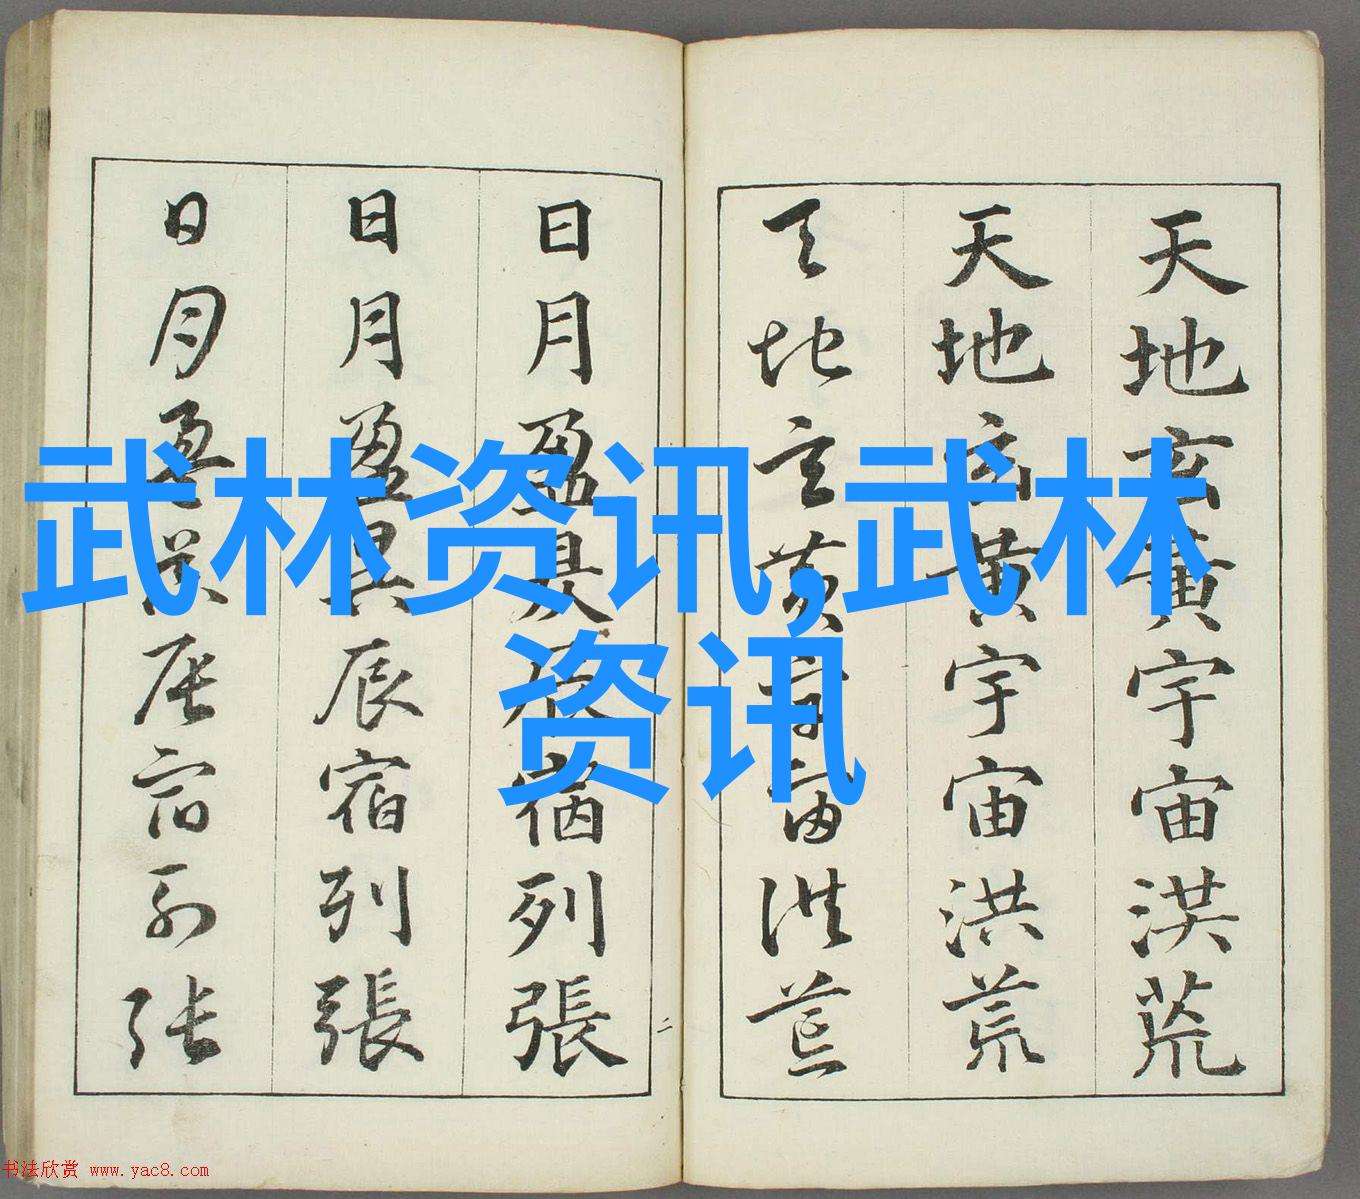 天地玄黃宇宙洪荒
天地玄黃宇宙洪荒
天地玄黃宇宙洪荒
日月盈昃辰宿列張
日月盈昃辰宿列張
日月盈昃辰宿列張
二
武林资讯,武林
资讯
书法欣赏 www.yac8.com